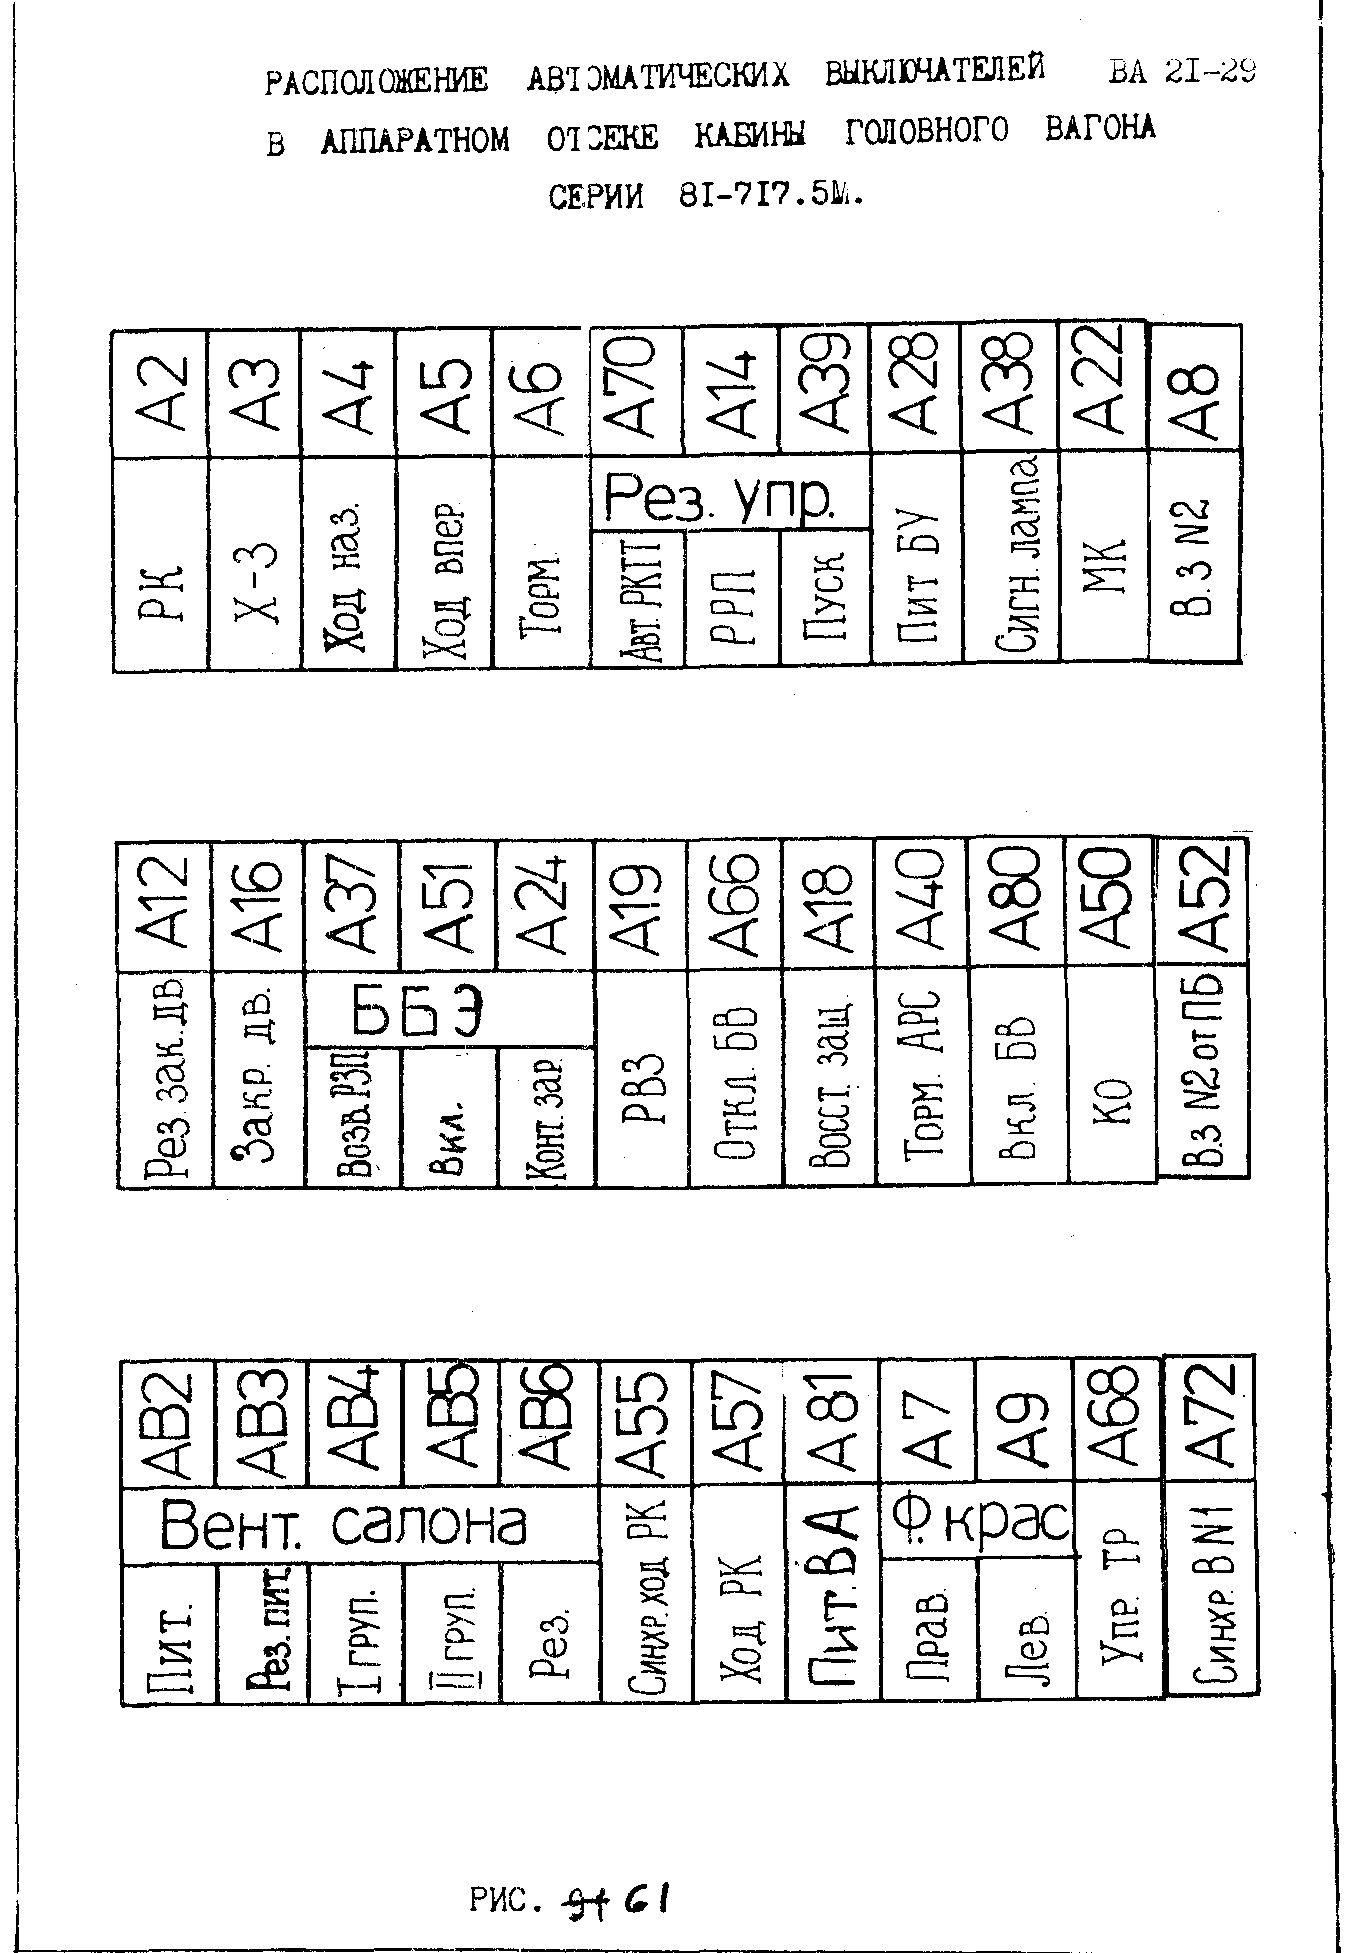 РАСПОЛОЖЕНИЕ АВТОМАТИЧЕСКИХ ВЫКЛЮЧАТЕЛЕЙ ВА 2I-29
В АППАРАТНОМ ОТСЕКЕ КАБИНЫ ГОЛОВНОГО ВАГОНА
СЕРИИ 8I-7I7.5М.
А2 А3 А4 А5 А6 А70 А14 А39 А28 А38 А22 А8
Рез. упр.
РК
Х-3
Ход наз.
Ход впер
Торм
Авт. РКТТ
РРП
Пуск
Пит БУ
Сигн. лампа
МК
В. З N2
А12 А16 А37 А51 А24 А19 А66 А18 А40 А80 А50 А52
ББЭ
Рез. зак. дв
Закр. дв.
Возв. РЗП
Вкл.
Конт. зар
РВЗ
Откл. БВ
Восст. защ.
Торм. АРС
Вкл. БВ
КО
В.З N2 от ПБ
АВ2 АВ3 АВ4 АВ5 АВ6 А55 А57 А81 А7 А9 А68 А72
Вент. салона
Ф крас
Пит.
Рез. пит.
I груп.
II груп.
Рез.
Синхр. ход РК
Ход РК
Пит. ВА
Прав.
Лев.
Упр. ТР
Синхр. В N1
РИС. 61